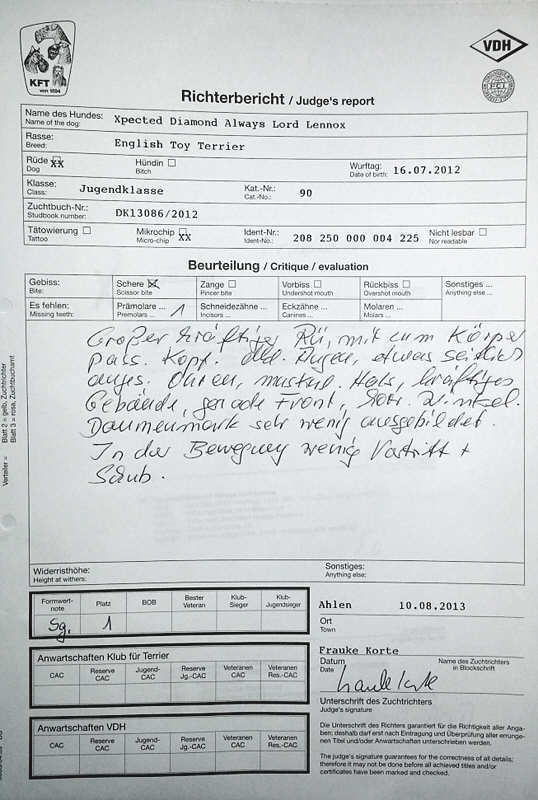 KFT
von 1894
VDH
F.C.I.
Richterbericht / Judge's report
Name des Hundes: Xpected Diamond Always Lord Lennox
Name of the dog:
Rasse: English Toy Terrier
Breed:
Rüde XX Hündin Wurftag: 16.07.2012
Dog Bitch Date of birth:
Klasse: Jugendklasse Kat.-Nr.: 90
Class: Cat.-No.:
Zuchtbuch-Nr.: DK13086/2012
Studbook number:
Tätowierung Mikrochip XX Ident-Nr.: 208 250 000 004 225 Nicht lesbar
Tattoo Micro-chip Ident-No.: Nor readable
Beurteilung / Critique / evaluation
Gebiss: Schere Zange Vorbiss Rückbiss Sonstiges ...
Bite: Scissor bite Pincer bite Undershot mouth Overshot mouth Anything else ...
Es fehlen: Prämolare ... 1 Schneidezähne ... Eckzähne ... Molaren ...
Missing teeth: Premolars ... Incisors ... Canines ... Molars ...
Großer kräftiger Rü, mit zum Körper
pass. Kopf. dkl. Augen, etwas seitlich
anges. Ohren, muskul. Hals, kräftiges
Gebäude, gerade Front, Winkel.
Daumenmark sehr wenig ausgebildet.
In der Bewegung wenig Vortritt +
Schub.
Widerristhöhe: Sonstiges:
Height at withers: Anything else:
Formwert- Platz BOB Bester Klub- Klub-
note Veteran Sieger Jugendsieger
Sg. 1
Ahlen 10.08.2013
Ort
Town
Anwartschaften Klub für Terrier
CAC Reserve CAC Jugend- CAC Reserve Jg.-CAC Veteranen CAC Veteranen Res.-CAC
Frauke Korte
Datum Name des Zuchtrichters
Date in Blockschrift
Frauke Korte
Unterschrift des Zuchtrichters
Judge's signature
Anwartschaften VDH
CAC Reserve CAC Jugend- CAC Reserve Jg.-CAC Veteranen CAC Veteranen Res.-CAC
Die Unterschrift des Richters garantiert für die Richtigkeit aller Anga-
ben; deshalb darf erst nach Eintragung und Überprüfung aller errunge-
nen Titel und/oder Anwartschaften unterschrieben werden.
The judge's signature guarantees the correctness of all details;
therefore it may not be done before all achieved titles and/or
certificates have been marked and checked.
Verteiler = Blatt 2 = gelb, Zuchtrichter
Blatt 3 = rosa, Zuchtbuchamt